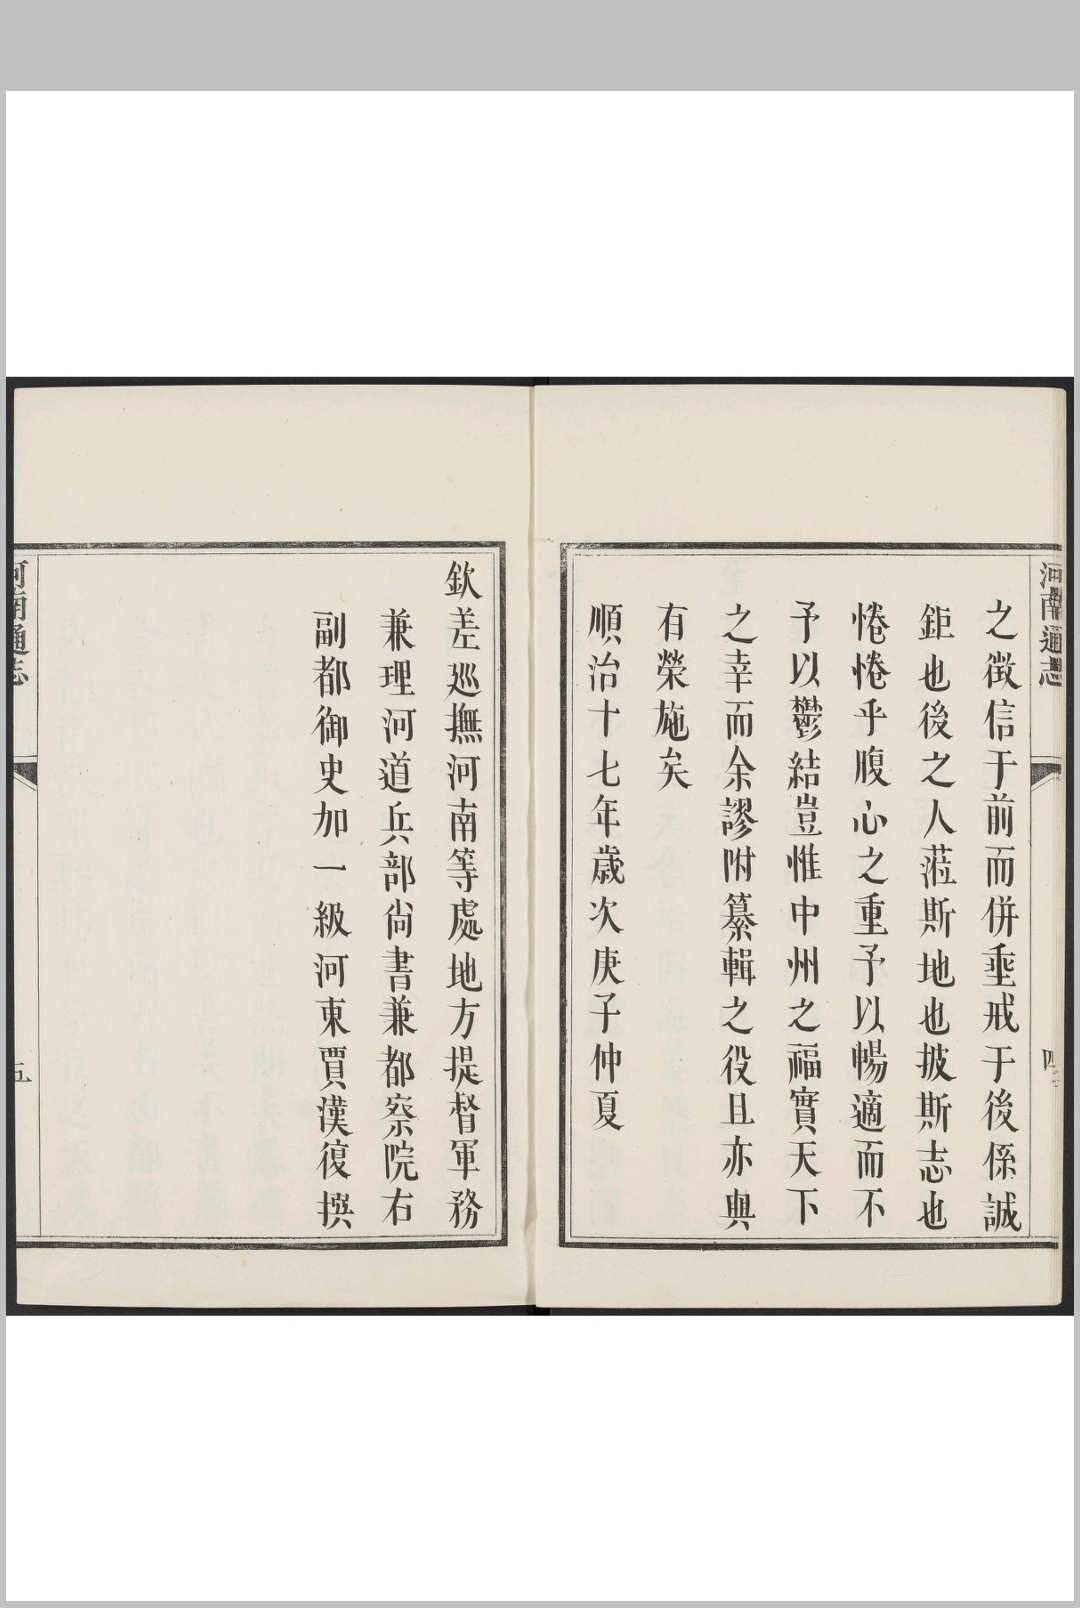 河南通志
四
之徵信于前而併垂戒于後係誠
鉅也後之人蒞斯地也披斯志也
惓惓乎腹心之重予以暢適而不
予以鬱結豈惟中州之福實天下
之幸而余謬附纂輯之役且亦與
有榮施矣
順治十七年歲次庚子仲夏
欽差巡撫河南等處地方提督軍務
兼理河道兵部尙書兼都察院右
副都御史加一級河東賈漢復撰
河南通志
五